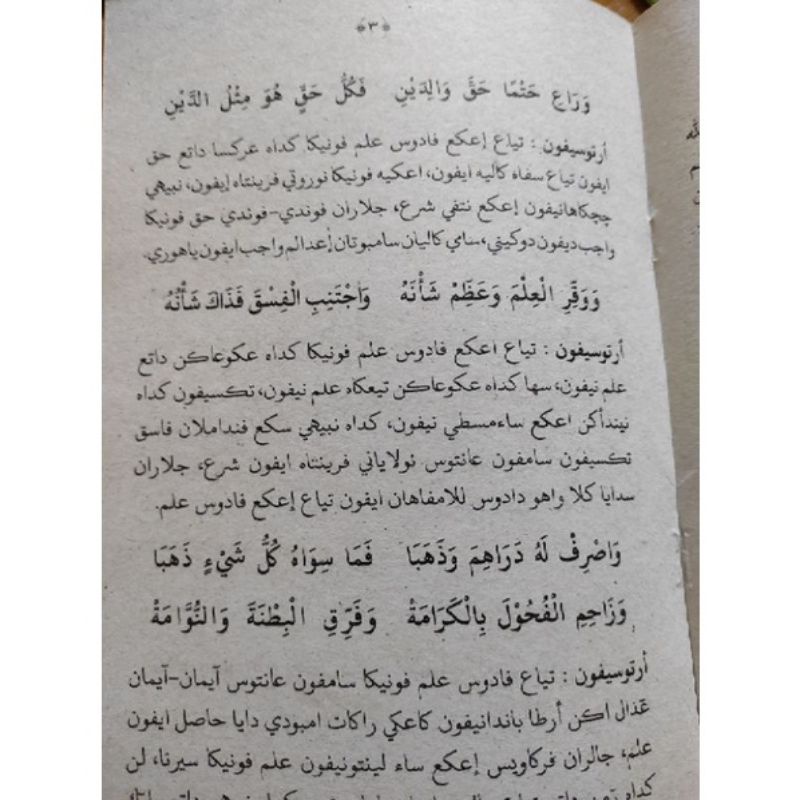 ﴿٣﴾
وَرَاعِ حَتْمًا حَقَّ وَالِدَيْنِ فَكُلُّ حَقٍّ هُوَ مِثْلُ الدَّيْنِ
أرتوسيفون : تياع إعكع فادوس علم فونيكا كداه عركسا داتع حق
ايفون تياع سفاه كاليه ايفون، اعكيه فونيكا نوروتي فرينتاه إيفون، نبيهي
چچكاهانيفون إعكع نتفي شرع، جلاران فوندي-فوندي حق فونيكا
واجب ديفون دوكيتي، سامي كاليان سامبوتان إعدالم واجب ايفون ياهوري.
وَوَقِّرِ الْعِلْمَ وَعَظِّمْ شَأْنَهُ وَاجْتَنِبِ الْفِسْقَ فَذَاكَ شَأْنُهُ
أرتوسيفون : تياع اعكع فادوس علم فونيكا كداه عكوعاكن داتع
علم نيفون، سها كداه عكوعاكن تيعكاه علم نيفون، تكسيفون كداه
نيندأكن اعكع ساءمسطي نيفون، كداه نبيهي سكع فنداملان فاسق
تكسيفون سامفون عانتوس نولاياني فرينتاه ايفون شرع، جلاران
سدايا كلا واهو دادوس للامفاهان ايفون تياع إعكع فادوس علم.
وَاصْرِفْ لَهُ دَرَاهِمَ وَذَهَبَا فَمَا سِوَاهُ كُلُّ شَيْءٍ ذَهَبَا
وَزَاحِمِ الْفُحُوْلَ بِالْكَرَامَةْ وَفَرِّقِ الْبِطْنَةَ وَالنُّوَّامَةْ
أرتوسيفون : تياع فادوس علم فونيكا سامفون عانتوس آيمان-آيمان
عدال اكن أرطا باندانيفون كاعكي راكات امبودي دايا حاصل ايفون
علم، جالران فركاويس إعكع ساء لينتونيفون علم فونيكا سيرنا، لن
كداه